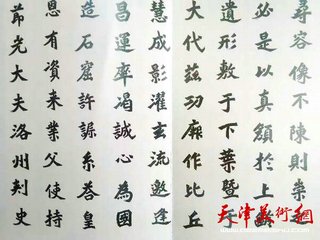 尋容像不陳則崇之
必是以真顔於上齡
遺形敷于下葉暨于
大代茲功厥作比丘
慧成影濯玄流邀逢
昌運率渴誠心為國
造石窟許系答皇
恩有資来業父使持
節光大夫洛州刾史
天津美術網